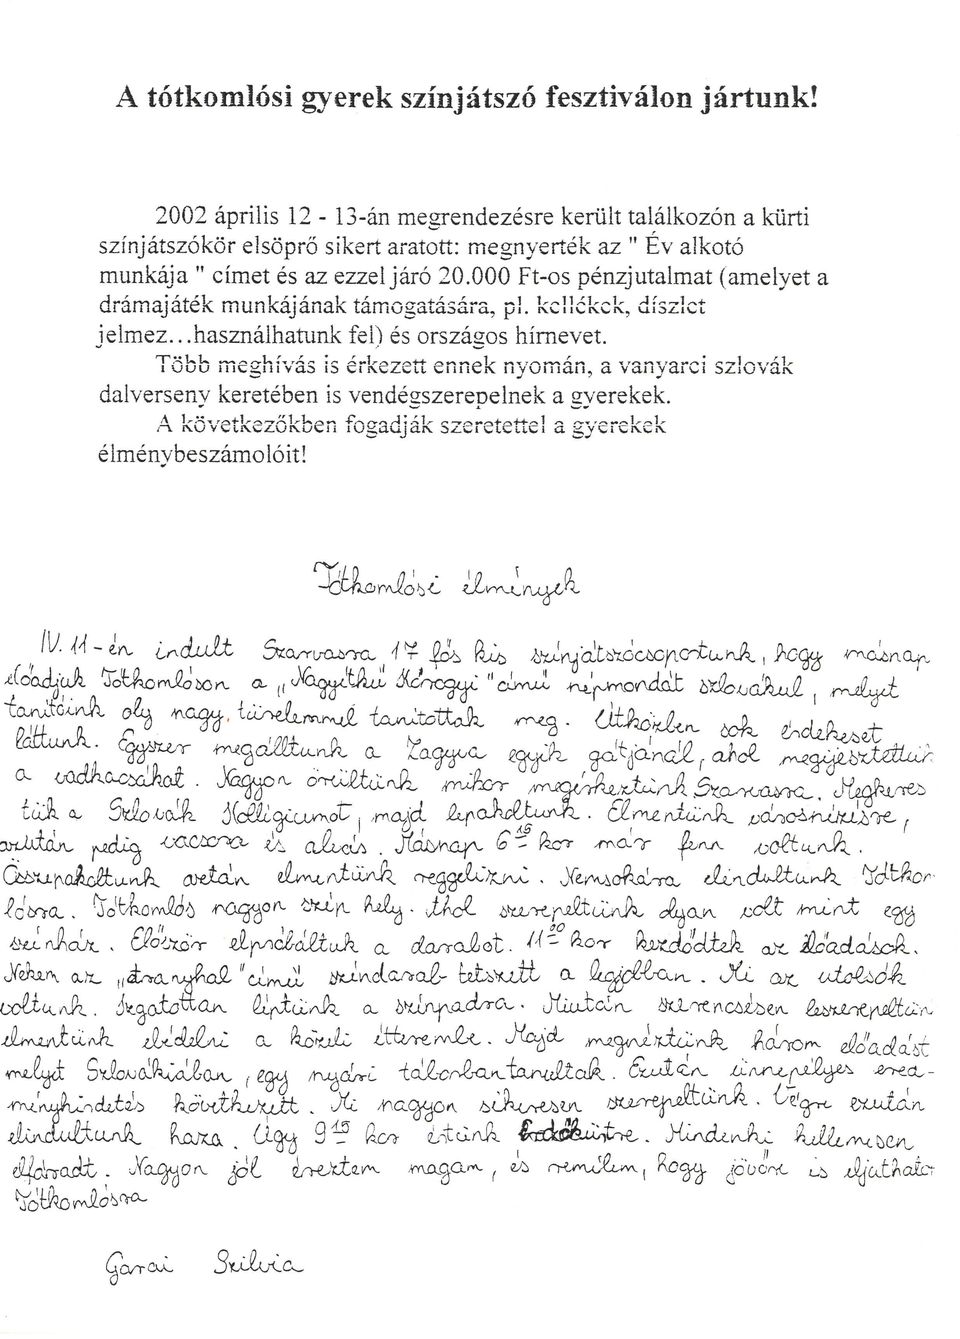 A tótkomlósi gyerek színjátszó fesztiválon jártunk!
2002 április 12 - 13-án megrendezésre került találkozón a kürti
színjátszókör elsöprő sikert aratott: megnyerték az " Év alkotó
munkája " címet és az ezzel járó 20.000 Ft-os pénzjutalmat (amelyet a
drámajáték munkájának támogatására, pl. kellékek, díszlet
jelmez...használhatunk fel) és országos hírnevet.
Több meghívás is érkezett ennek nyomán, a vanyarci szlovák
dalverseny keretében is vendégszerepelnek a gyerekek.
A következőkben fogadják szeretettel a gyerekek
élménybeszámolóit!
Tótkomlósi élmények
IV. 11-én indult Szarvasra 17 fős kis színjátszócsoportunk, hogy másnap
előadjuk Tótkomlóson a „Nagyétkű Kórogyi" című népmondát szlovákul, melyet
tanítóink oly nagy türelemmel tanítottak meg. Útközben sok érdekeset
láttunk. Egyszer megálltunk a Zagyva egyik gátjánál, ahol megijesztettük
a vadkacsákat. Nagyon örültünk mikor megérkeztünk Szarvasra. Megkeres
tük a Szlovák Kolligiumot, majd lepakoltunk. Elmentünk városnézésre,
azután pedig vacsora és alvás. Másnap 6 15 kor már fenn voltunk.
Összepakoltunk aztán elmentünk reggelizni. Nemsokára elindultunk Tótkom-
lósra. Tótkomlós nagyon szép hely. Ahol szerepeltünk olyan volt mint egy
színház. Először elpróbáltuk a darabot. 11 20 kor kezdődtek az előadások.
Nekem az „Aranyhal" című színdarab tetszett a legjobban. Mi az utolsók
voltunk. Izgatottan léptünk a színpadra. Miután szerencsésen leszerepeltün
elmentünk ebédelni a közeli étterembe. Majd megnéztünk három előadást
melyet Szlovákiában, egy nyári táborban tanultak. Ezután ünnepélyes ered-
ményhirdetés következett. Mi nagyon sikeresen szerepeltünk. Végre ezután
elindultunk haza. Úgy 9 15 kor értünk Erdőkürtre. Mindenki kellemesen
elfáradt. Nagyon jól éreztem magam, és remélem, hogy jövőre is eljuthatok
Tótkomlósra
Garai Szilvia